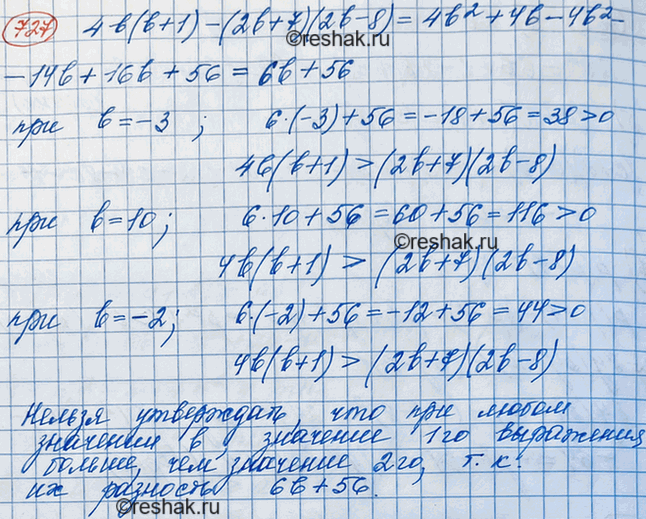 727 4b(b+1)-(2b+7)(2b-8)=4b²+4b-4b²-
©reshak.ru
-14b+16b+56=6b+56
при b=-3; 6·(-3)+56=-18+56=38>0
4b(b+1)>(2b+7)(2b-8)
при b=10; 6·10+56=60+56=116>0
©reshak.ru
4b(b+1)>(2b+7)(2b-8)
при b=-2; 6·(-2)+56=-12+56=44>0
4b(b+1)>(2b+7)(2b-8)
Нельзя утверждать, что при любом
значении b, значение 1го выражения
больше, чем значение 2го, т.к.
их разность 6b+56.
©reshak.ru